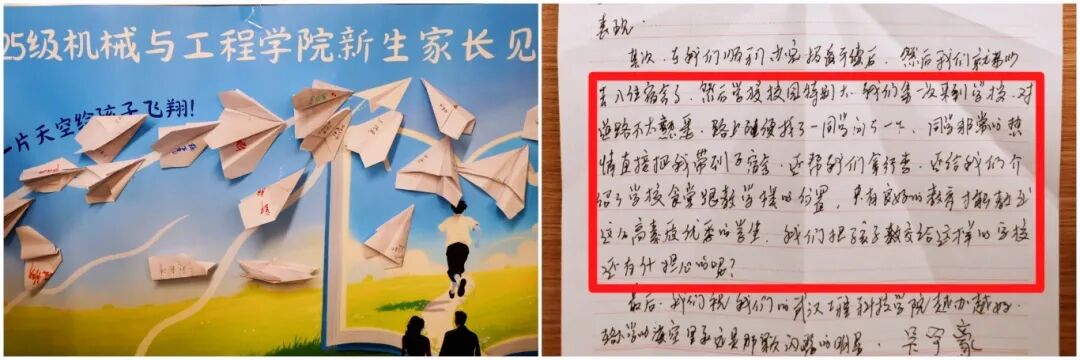 25级机械与工程学院新生家长见
一片天空给孩子飞翔!
其次,在我们顺利办完报到手续后,然后我们就要
去入住宿舍了,然后学校校园特别大,我们第一次来到学校,对
道路不太熟悉,路上随便找了一同学问了一下,同学非常的热
情直接把我带到了宿舍,还帮我们拿行李,还给我们介
绍了学校食堂跟教学楼的位置,只有良好的教育才能教出
这么高素质优秀的学生,我们把孩子教交给这样的学校
还有什担心的呢?
最后,我们祝我们的武汉工程科技学院越办越好,